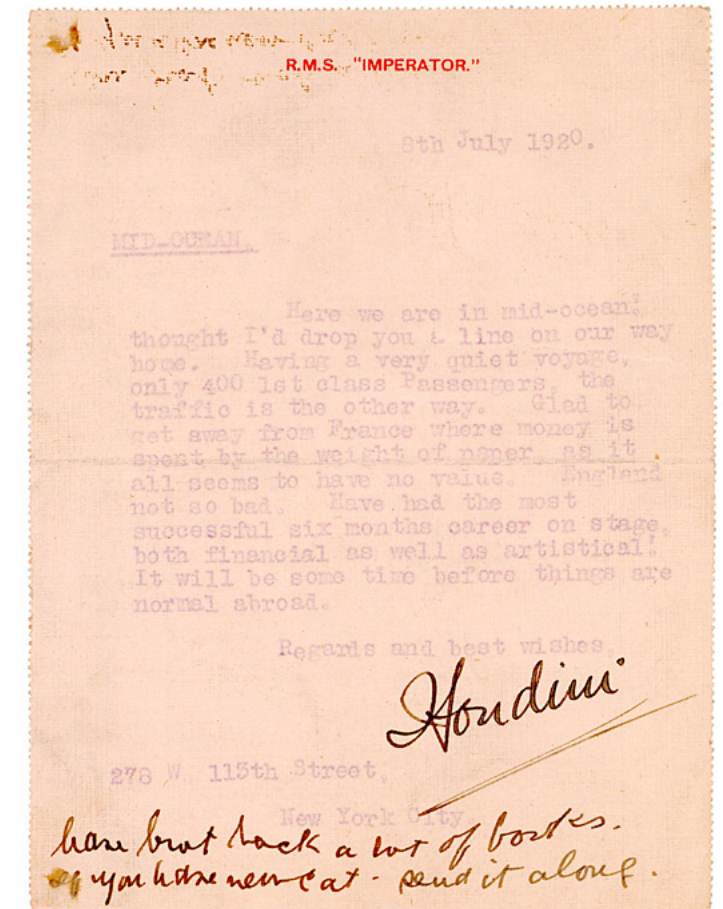 R.M.S. "IMPERATOR."
8th July 1920.
MID-OCEAN.
Here we are in mid-ocean!
thought I'd drop you a line on our way
home. Having a very quiet voyage,
only 400 1st class Passengers, the
traffic is the other way. Glad to
get away from France where money is
spent by the weight of paper, as it
all seems to have no value. England
not so bad. Have had the most
successful six months career on stage,
both financial as well as artistical!
It will be some time before things are
normal abroad.
Regards and best wishes,
Houdini
278 W. 113th Street,
New York City.
have brot back a lot of books.
if you have new cat - send it along.